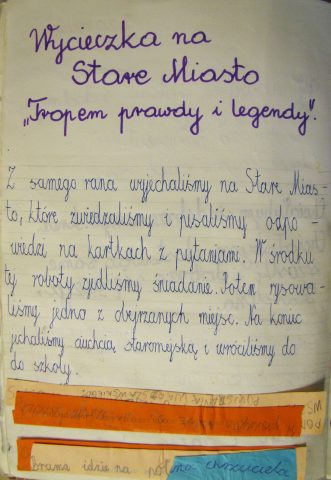 Wycieczka na
Stare Miasto
„Tropem prawdy i legendy".
Z samego rana wyjechaliśmy na Stare Mias-
to, które zwiedzaliśmy i pisaliśmy odpo-
wiedzi na kartkach z pytaniami. W środku
tej roboty zjedliśmy śniadanie. Potem rysowa-
liśmy jedno z obejrzanych miejsc. Na koniec
jechaliśmy ciuchcią staromiejską i wróciliśmy do
do szkoły.
Brama idzie na